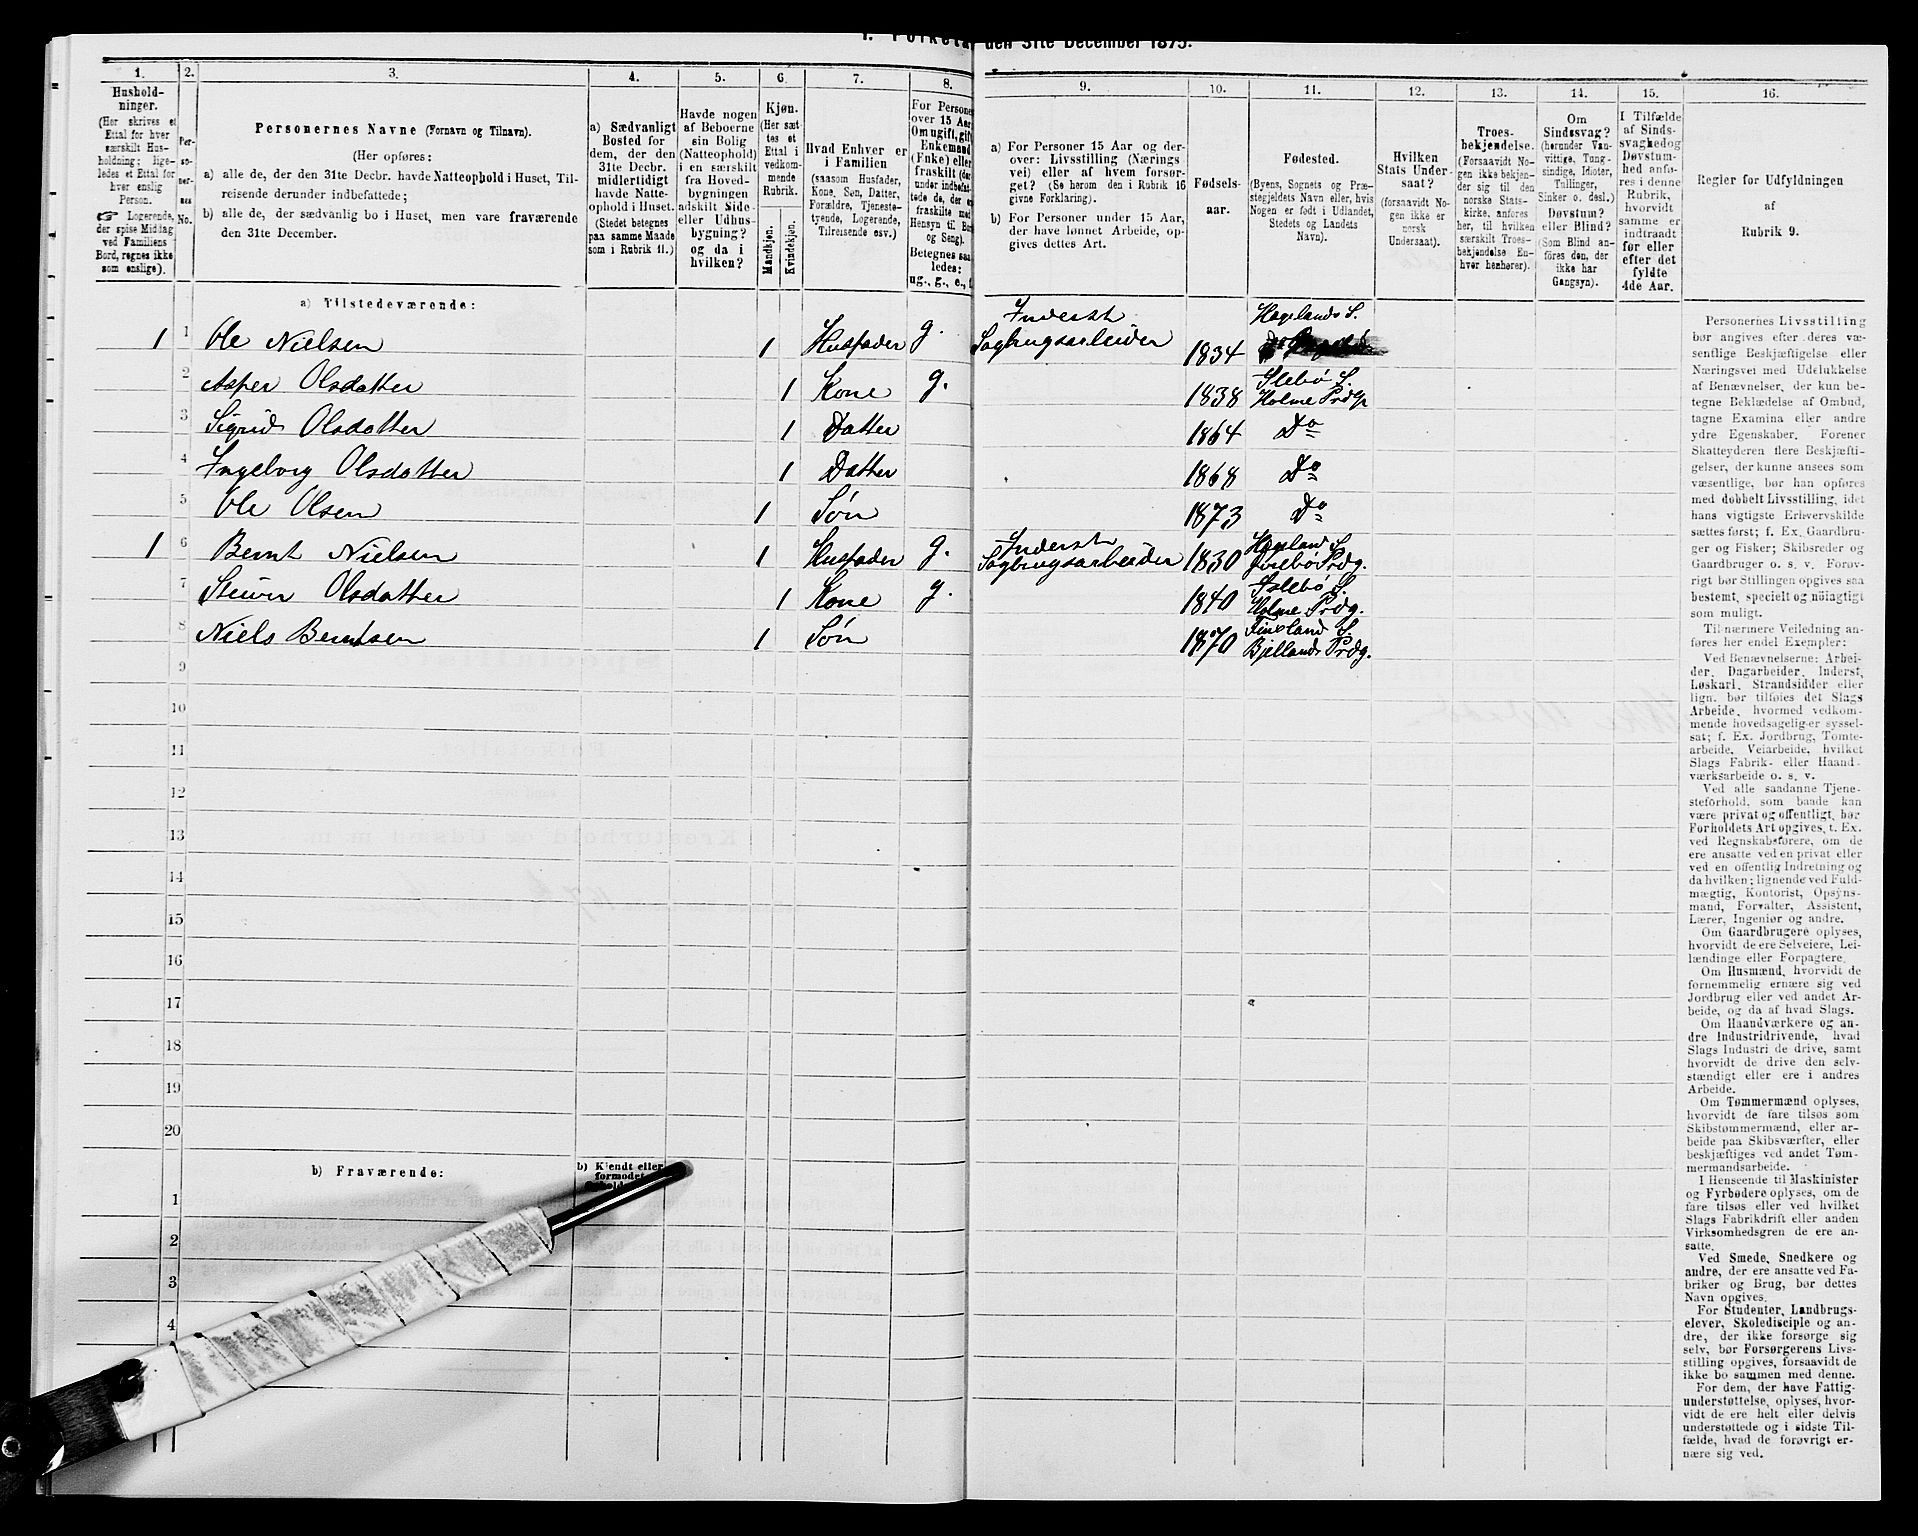 den 31te December 1875.
1.
Hushold-
ninger.
(Her skrives et
Ettal for hver
særskilt Hus-
holdning; lige-
ledes et Ettal for
hver enslig
Person.
Logerende,
der spise Middag
ved Familiens
Bord, regnes ikke
som enslige).
2.
Per-
so-
ner-
nes
No.
3.
Personernes Navne (Fornavn og Tilnavn).
(Her opføres:
a) alle de, der den 31te Decbr. havde Natteophold i Huset, Til-
reisende derunder indbefattede;
b) alle de, der sædvanlig bo i Huset, men vare fraværende
den 31te December.
4.
a) Sædvanligt
Bosted for
dem, der den
31te Decbr.
midlertidigt
havde Natte-
ophold i Huset.
(Stedet betegnes
paa samme Maade
som i Rubrik 11.)
5.
Havde nogen
af Beboerne
sin Bolig
(Natteophold)
i en særskilt
fra Hoved-
bygningen
adskilt Side-
eller Udhus-
bygning?
og da i
hvilken?
6.
Kjøn.
(Her sæt-
tes et
Ettal i
vedkom-
mende
Rubrik.
Mandkjøn.
Kvindekjøn.
7.
Hvad Enhver er
i Familien
(saasom Husfader,
Kone, Søn, Datter,
Forældre, Tjeneste-
tyende, Logerende,
Tilreisende osv.)
8.
For Personer
over 15 Aar:
Om ugift, gift,
Enkemand
(Enke) eller
fraskilt (de
under indbefat-
tede de, der er
fraskilte med
Hensyn til Bord
og Seng).
Betegnes saa-
ledes:
ug., g., e., f.
9.
a) For Personer 15 Aar og der-
over: Livsstilling (Nærings
vei) eller af hvem forsør-
get? (Se herom den i Rubrik 16
givne Forklaring).
b) For Personer under 15 Aar,
der have lønnet Arbeide, op-
gives dettes Art.
10.
Fødsels-
aar.
11.
Fødested.
(Byens, Sognets og Præ-
stegjeldets Navn eller, hvis
Nogen er født i Udlandet,
Stedets og Landets
Navn).
12.
Hvilken
Stats Under-
saat?
(forsaavidt No-
gen ikke er
norsk
Undersaat).
13.
Troes-
bekjendelse.
(Forsaavidt No-
gen ikke bekjen-
der sig til den
norske Stats-
kirke, anføres
her, til hvilken
særskilt Troes-
bekjendelse En-
hver henhører).
14.
Om
Sindssvag?
(herunder Van-
vittige, Tung-
sindige, Idioter,
Tullinger,
Sinker o. desl.)
Døvstum?
eller Blind?
(Som Blind an-
føres den, der
ikke har
Gangsyn).
15.
I Tilfælde
af Sinds-
svaghed og
Døvstum-
hed anfø-
res i denne
Rubrik,
hvorvidt
samme er
indtraadt
før eller
efter det
fyldte
4de Aar.
16.
Regler for Udfyldningen
af
Rubrik 9.
a) Tilstedeværende:
1 1 Ole Nielsen 1 Husfader g. Inderst Sagbrugsarbeider 1834 Hægelands S.
2 Asper Olsdatter 1 Kone g. 1838 Ilebø S. Holme Prdg
3 Sigrid Olsdatter 1 Datter 1864 Do
4 Ingeborg Olsdatter 1 Datter 1868 Do
5 Ole Olsen 1 Søn 1873 Do
1 6 Bernt Nielsen 1 Husfader g. Inderst Sagbrugsarbeider 1830 Hægeland S. Øvrebø Prdg.
7 Olsdatter 1 Kone g. 1840 Islebø S. Holme Prdg.
8 Niels Berntsen 1 Søn 1870 Finsland S. Bjellands Prdg.
9
10
11
12
13
14
15
16
17
18
19
20
b) Fraværende:
b) Kjendt eller
formodet
1
2
3
4
Personernes Livsstilling
bør angives efter deres væ-
sentlige Beskjæftigelse eller
Næringsvei med Udelukkelse
af Benævnelser, der kun be-
tegne Beklædelse af Ombud,
tagne Examina eller andre
ydre Egenskaber. Forener
Skatteyderen flere Beskjæfti-
gelser, der kunne ansees som
væsentlige, bør han opføres
med dobbelt Livsstilling, idet
hans vigtigste Erhvervskilde
sættes først; f. Ex. Gaardbru-
ger og Fisker; Skibsreder og
Gaardbruger o. s. v. Forøv-
rigt bør Stillingen opgives saa
bestemt, specielt og nøiagtigt
som muligt.
Til nærmere Veiledning an-
føres her endel Exempler:
Ved Benævnelserne: Arbei-
der, Dagarbeider, Inderst,
Løskarl, Strandsidder eller
lign. bør tilføies det Slags
Arbeide, hvormed vedkom-
mende hovedsagelig er syssel-
sat; f. Ex. Jordbrug, Tomte-
arbeide, Veiarbeide, hvilket
Slags Fabrik- eller Haand-
værksarbeide o. s. v.
Ved alle saadanne Tjene-
steforhold, som baade kan
være privat og offentligt, bør
Forholdets Art opgives, t. Ex.
ved Regnskabsførere, om de
ere ansatte ved en privat eller
ved en offentlig Indretning og
da hvilken; lignende ved Fuld-
mægtig, Kontorist, Opsyns-
mand, Forvalter, Assistent,
Lærer, Ingeniør og andre.
Om Gaardbrugere oplyses,
hvorvidt de ere Selveiere, Lei-
lændinge eller Forpagtere.
Om Husmænd, hvorvidt de
fornemmelig ernære sig ved
Jordbrug eller ved andet Ar-
beide, og da af hvad Slags.
Om Haandværkere og an-
dre Industridrivende, hvad
Slags Industri de drive, samt
hvorvidt de drive den selv-
stændigt eller ere i andres
Arbeide.
Om Tømmermænd oplyses,
hvorvidt de fare tilsøs som
Skibstømmermænd, eller ar-
beide paa Skibsværfter, eller
beskjæftiges ved andet Tøm-
mermandsarbeide.
I Henseende til Maskinister
og Fyrbødere oplyses, om de
fare tilsøs eller ved hvilket
Slags Fabrikdrift eller anden
Virksomhedsgren de ere an-
satte.
Ved Smede, Snedkere og
andre, der ere ansatte ved Fa-
briker og Brug, bør dettes
Navn opgives.
For Studenter, Landbrugs-
elever, Skoledisciple og an-
dre, der ikke forsørge sig
selv, bør Forsørgerens Livs-
stilling opgives, forsaavidt de
ikke bo sammen med denne.
For dem, der have Fattig-
understøttelse, oplyses, hvor-
vidt de ere helt eller delvis
understøttede og i sidste Til-
fælde, hvad de forøvrigt er-
nære sig ved.